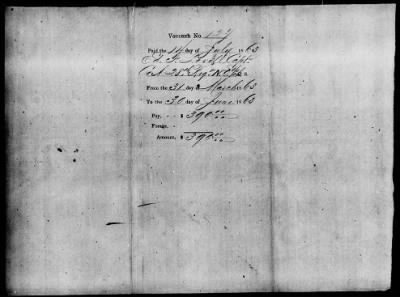 Voucher No. 127
Paid the 14 day of July 1863
Capt
Co 28th Reg N.C.
From the 31 day of March 1863
To the 30 day of June 1863
Pay, - - $ 390.00
Forage, -
Amount, $ 390.00